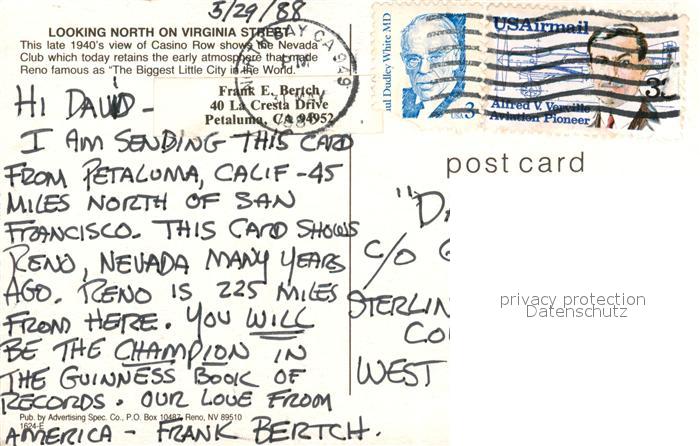 5/29/88
LOOKING NORTH ON VIRGINIA STREET
This late 1940's view of Casino Row shows the Nevada
Club which today retains the early atmosphere that made
Reno famous as "The Biggest Little City in the World."
Frank E. Bertch
40 La Cresta Drive
Petaluma, CA 94952
CA 949
PM
Paul Dudley White MD
USA 3
USAirmail
Alfred V. Verville
Aviation Pioneer
post card
HI DAVID -
I AM SENDING THIS CARD
FROM PETALUMA, CALIF - 45
MILES NORTH OF SAN
FRANCISCO. THIS CARD SHOWS
RENO, NEVADA MANY YEARS
AGO. RENO IS 225 MILES
FROM HERE. YOU WILL
BE THE CHAMPION IN
THE GUINNESS BOOK OF
RECORDS. OUR LOVE FROM
AMERICA - FRANK BERTCH.
Pub. by Advertising Spec. Co., P.O. Box 10487, Reno, NV 89510
1624-E
"D
C/O
STERLIN
CO
WEST
privacy protection
Datenschutz